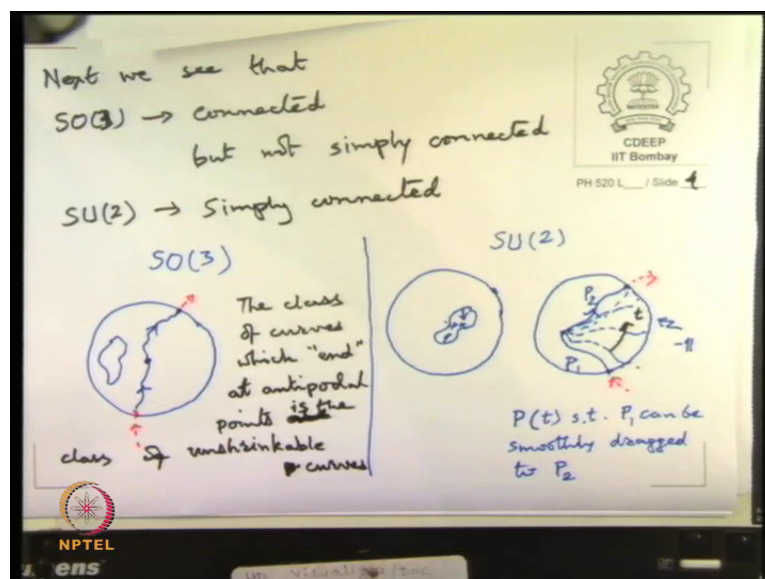 Next we see that
SO(3) → connected
but not simply connected
SU(2) → Simply connected
CDEEP
IIT Bombay
PH 520 L___ / Slide 4
SO(3)
The class
of curves
which "end"
at antipodal
points is the
class of unshrinkable
curves
SU(2)
P₂
t
-1
P₁
P(t) s.t. P₁ can be
smoothly dragged
to P₂
NPTEL